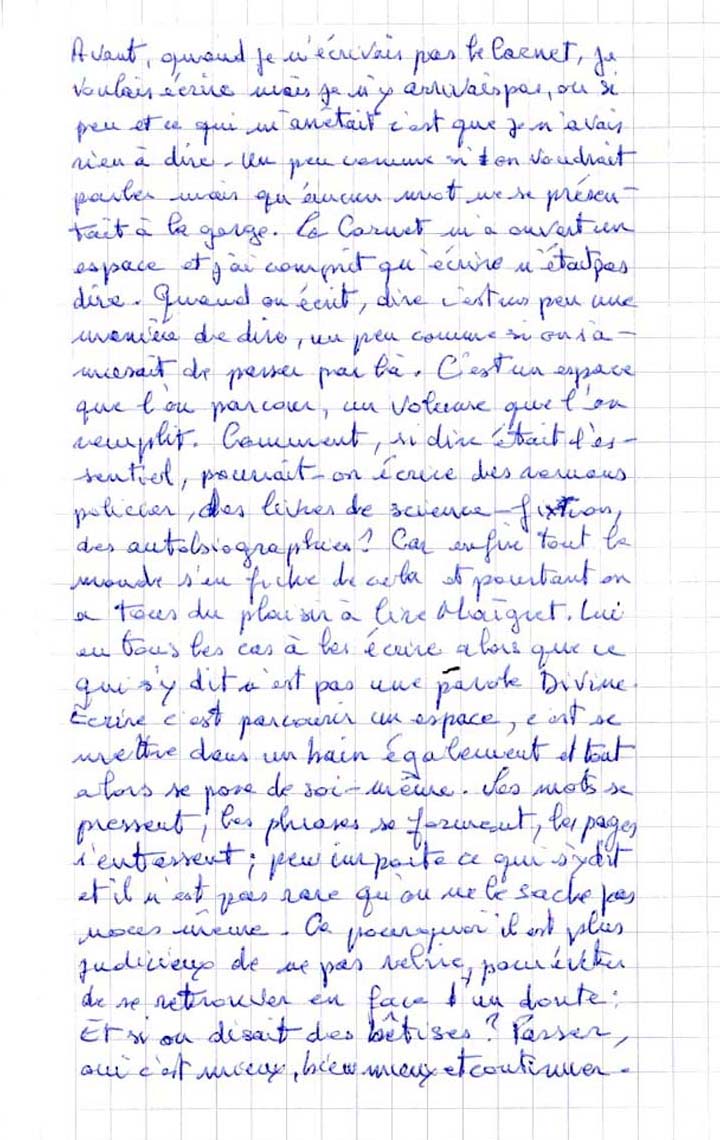 Avant, quand je n'écrivais pas le Carnet, je
voulais écrire mais je n'y arrivais pas, ou si
peu et ce qui m'arrêtait c'est que je n'avais
rien à dire - Un peu comme si l'on voudrait
parler mais qu'aucun mot ne se présen-
tait à la gorge. Le Carnet m'a ouvert un
espace et j'ai comprit qu'écrire n'était pas
dire. Quand on écrit, dire c'est un peu une
manière de dire, un peu comme si on s'a-
musait de passer par là. C'est un espace
que l'on parcour, un volume que l'on
remplit. Comment, si dire était l'es-
sentiel, pourrait-on écrire des romans
policier, des livres de science-fixtion,
des autobiographies? Car enfin tout le
monde s'en fiche de cela et pourtant on
a tous du plaisir à lire Maigret. Lui
en tous les cas à les écrire alors que ce
qui s'y dit n'est pas une parole Divine.
Ecrire c'est parcourir un espace, c'est se
mettre dans un bain également et tout
alors se pose de soi-même. Les mots se
pressent, les phrases se forment, les pages
s'entassent; peu importe ce qui s'y dit
et il n'est pas rare qu'on ne le sache pas
nous même. Ce pourquoi il est plus
judicieux de ne pas relire, pour éviter
de se retrouver en face d'un doute:
Et si on disait des bêtises? Passer,
oui c'est mieux, bien mieux et continuer.